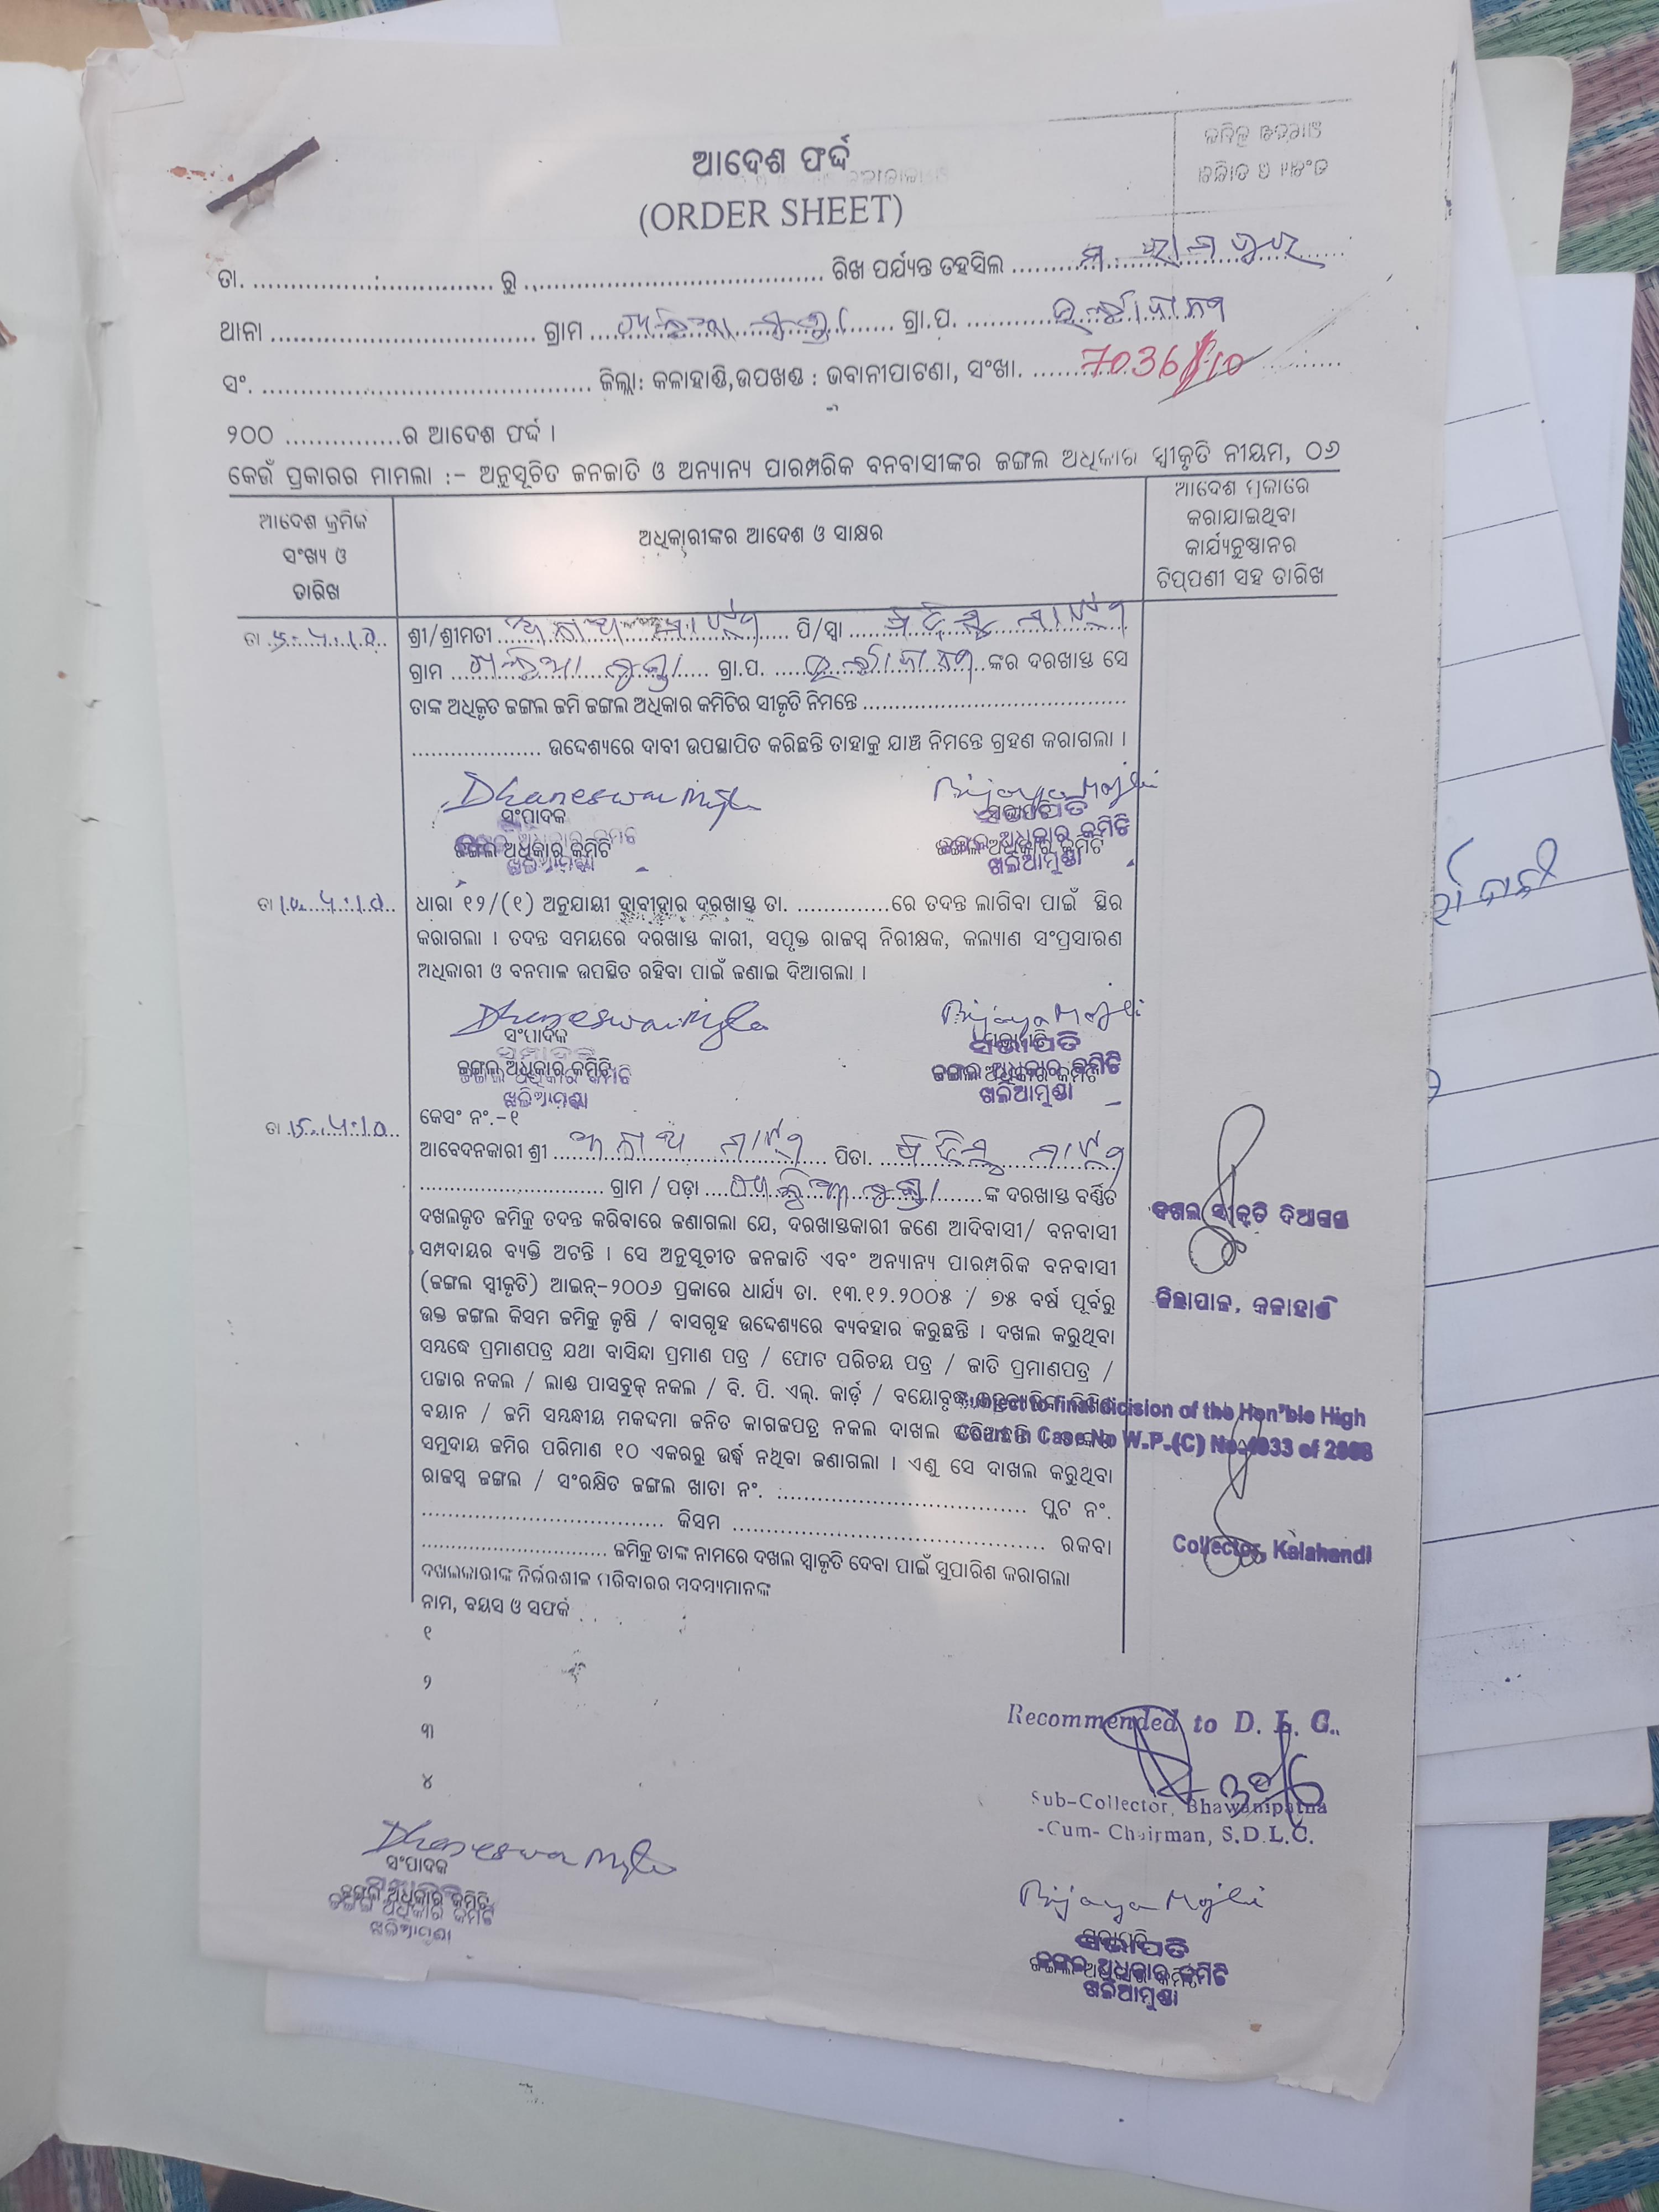 ଆଦେଶ ଫର୍ଦ୍ଦ
(ORDER SHEET)
ତା. ................................ ରୁ ........................................ ରିଖ ପର୍ଯ୍ୟନ୍ତ ତହସିଲ ..............................
ଥାନା .................................. ଗ୍ରାମ .................................. ଗ୍ରା.ପ. ..................................
ସଂ. ............................................ ଜିଲ୍ଲା: କଳାହାଣ୍ଡି,ଉପଖଣ୍ଡ : ଭବାନୀପାଟଣା, ସଂଖା. .......... 7036/10
୨୦୦ ...............ର ଆଦେଶ ଫର୍ଦ୍ଦ ।
କେଉଁ ପ୍ରକାରର ମାମଲା :- ଅନୁସୂଚିତ ଜନଜାତି ଓ ଅନ୍ୟାନ୍ୟ ପାରମ୍ପରିକ ବନବାସୀଙ୍କର ଜଙ୍ଗଲ ଅଧିକାର ସ୍ୱୀକୃତି ନୀୟମ, ୦୬
ଆଦେଶ କ୍ରମିକ
ସଂଖ୍ୟ ଓ
ତାରିଖ
ଅଧିକାରୀଙ୍କର ଆଦେଶ ଓ ସାକ୍ଷର
ଆଦେଶ ପ୍ରକାରେ
କରାଯାଇଥିବା
କାର୍ଯ୍ୟନୁଷ୍ଠାନର
ଟିପ୍ପଣୀ ସହ ତାରିଖ
ତା
ଶ୍ରୀ/ଶ୍ରୀମତୀ ........................................ ପି/ସ୍ୱା ........................................
ଗ୍ରାମ .................................. ଗ୍ରା.ପ. ............................ଙ୍କର ଦରଖାସ୍ତ ସେ
ତାଙ୍କ ଅଧିକୃତ ଜଙ୍ଗଲ ଜମି ଜଙ୍ଗଲ ଅଧିକାର କମିଟିର ସୀକୃତି ନିମନ୍ତେ ........................................
.................... ଉଦ୍ଦେଶ୍ୟରେ ଦାବୀ ଉପସ୍ଥାପିତ କରିଛନ୍ତି ତାହାକୁ ଯାଞ୍ଚ ନିମନ୍ତେ ଗ୍ରହଣ କରାଗଲା ।
Dhaneswar Majhi
ସଂପାଦକ
ଜଙ୍ଗଲ ଅଧିକାର କମିଟି
ଖଲିଆମୁଣ୍ଡା
Bijaya Majhi
ସଭାପତି
ଜଙ୍ଗଲ ଅଧିକାର କମିଟି
ଖଲିଆମୁଣ୍ଡା
ତା
ଧାରା ୧୨/(୧) ଅନୁଯାୟୀ ଦାବୀହାର ଦରଖାସ୍ତ ତା. ...............ରେ ତଦନ୍ତ ଲାଗିବା ପାଇଁ ସ୍ଥିର
କରାଗଲା । ତଦନ୍ତ ସମୟରେ ଦରଖାସ୍ତ କାରୀ, ସପୃକ୍ତ ରାଜସ୍ୱ ନିରୀକ୍ଷକ, କଲ୍ୟାଣ ସଂପ୍ରସାରଣ
ଅଧିକାରୀ ଓ ବନପାଳ ଉପସ୍ଥିତ ରହିବା ପାଇଁ ଜଣାଇ ଦିଆଗଲା ।
Dhaneswar Majhi
ସଂପାଦକ
ଜଙ୍ଗଲ ଅଧିକାର କମିଟି
ଖଲିଆମୁଣ୍ଡା
Bijaya Majhi
ସଭାପତି
ଜଙ୍ଗଲ ଅଧିକାର କମିଟି
ଖଲିଆମୁଣ୍ଡା
କେସଂ ନଂ.-୧
ତା
ଆବେଦନକାରୀ ଶ୍ରୀ ........................................ ପିତା. ........................................
.............................. ଗ୍ରାମ / ପଡ଼ା ........................................ଙ୍କ ଦରଖାସ୍ତ ବର୍ଣ୍ଣିତ
ଦଖଲକୃତ ଜମିକୁ ତଦନ୍ତ କରିବାରେ ଜଣାଗଲା ଯେ, ଦରଖାସ୍ତକାରୀ ଜଣେ ଆଦିବାସୀ/ ବନବାସୀ
ସମ୍ପଦାୟର ବ୍ୟକ୍ତି ଅଟନ୍ତି । ସେ ଅନୁସୂଚୀତ ଜନଜାତି ଏବଂ ଅନ୍ୟାନ୍ୟ ପାରମ୍ପରିକ ବନବାସୀ
(ଜଙ୍ଗଲ ସ୍ୱୀକୃତି) ଆଇନ୍-୨୦୦୬ ପ୍ରକାରେ ଧାର୍ଯ୍ୟ ତା. ୧୩.୧୨.୨୦୦୫ / ୭୫ ବର୍ଷ ପୂର୍ବରୁ
ଉକ୍ତ ଜଙ୍ଗଲ କିସମ ଜମିକୁ କୃଷି / ବାସଗୃହ ଉଦ୍ଦେଶ୍ୟରେ ବ୍ୟବହାର କରୁଛନ୍ତି । ଦଖଲ କରୁଥିବା
ସମ୍ବନ୍ଧେ ପ୍ରମାଣପତ୍ର ଯଥା ବାସିନ୍ଦା ପ୍ରମାଣ ପତ୍ର / ଫୋଟ ପରିଚୟ ପତ୍ର / ଜାତି ପ୍ରମାଣପତ୍ର /
ପଟ୍ଟାର ନକଲ / ଲାଣ୍ଡ ପାସବୁକ୍ ନକଲ / ବି. ପି. ଏଲ୍. କାର୍ଡ଼ / ବୟୋବୃଦ୍ଧ
ବୟାନ / ଜମି ସମ୍ବନ୍ଧୀୟ ମକଦ୍ଦମା ଜନିତ କାଗଜପତ୍ର ନକଲ ଦାଖଲ କରିଅଛନ୍ତି ।
ସମୁଦାୟ ଜମିର ପରିମାଣ ୧୦ ଏକରରୁ ଉର୍ଦ୍ଧ୍ୱ ନଥିବା ଜଣାଗଲା । ଏଣୁ ସେ ଦାଖଲ କରୁଥିବା
ରାଜସ୍ୱ ଜଙ୍ଗଲ / ସଂରକ୍ଷିତ ଜଙ୍ଗଲ ଖାତା ନଂ. .................................. ପ୍ଲଟ ନଂ.
.................................. କିସମ ........................................ ରକବା
.............................. ଜମିକୁ ତାଙ୍କ ନାମରେ ଦଖଲ ସ୍ୱୀକୃତି ଦେବା ପାଇଁ ସୁପାରିଶ କରାଗଲା
ଦଖଲକାରୀଙ୍କ ନିର୍ଭରଶୀଳ ପରିବାରର ସଦସ୍ୟମାନଙ୍କ
ନାମ, ବୟସ ଓ ସମ୍ପର୍କ
୧
୨
୩
୪
ଦଖଲ ସ୍ୱୀକୃତି ଦିଆଗଲା
ଜିଲ୍ଲାପାଳ, କଳାହାଣ୍ଡି
Subject to final dicision of the Hon'ble High
Court in Case No W.P.(C) No. 4933 of 2008
Collector, Kalahandi
Recommended to D. L. C.
Sub-Collector, Bhawanipatna
-Cum- Chairman, S.D.L.C.
Dhaneswar Majhi
ସଂପାଦକ
ଜଙ୍ଗଲ ଅଧିକାର କମିଟି
ଖଲିଆମୁଣ୍ଡା
Bijaya Majhi
ସଭାପତି
ଜଙ୍ଗଲ ଅଧିକାର କମିଟି
ଖଲିଆମୁଣ୍ଡା